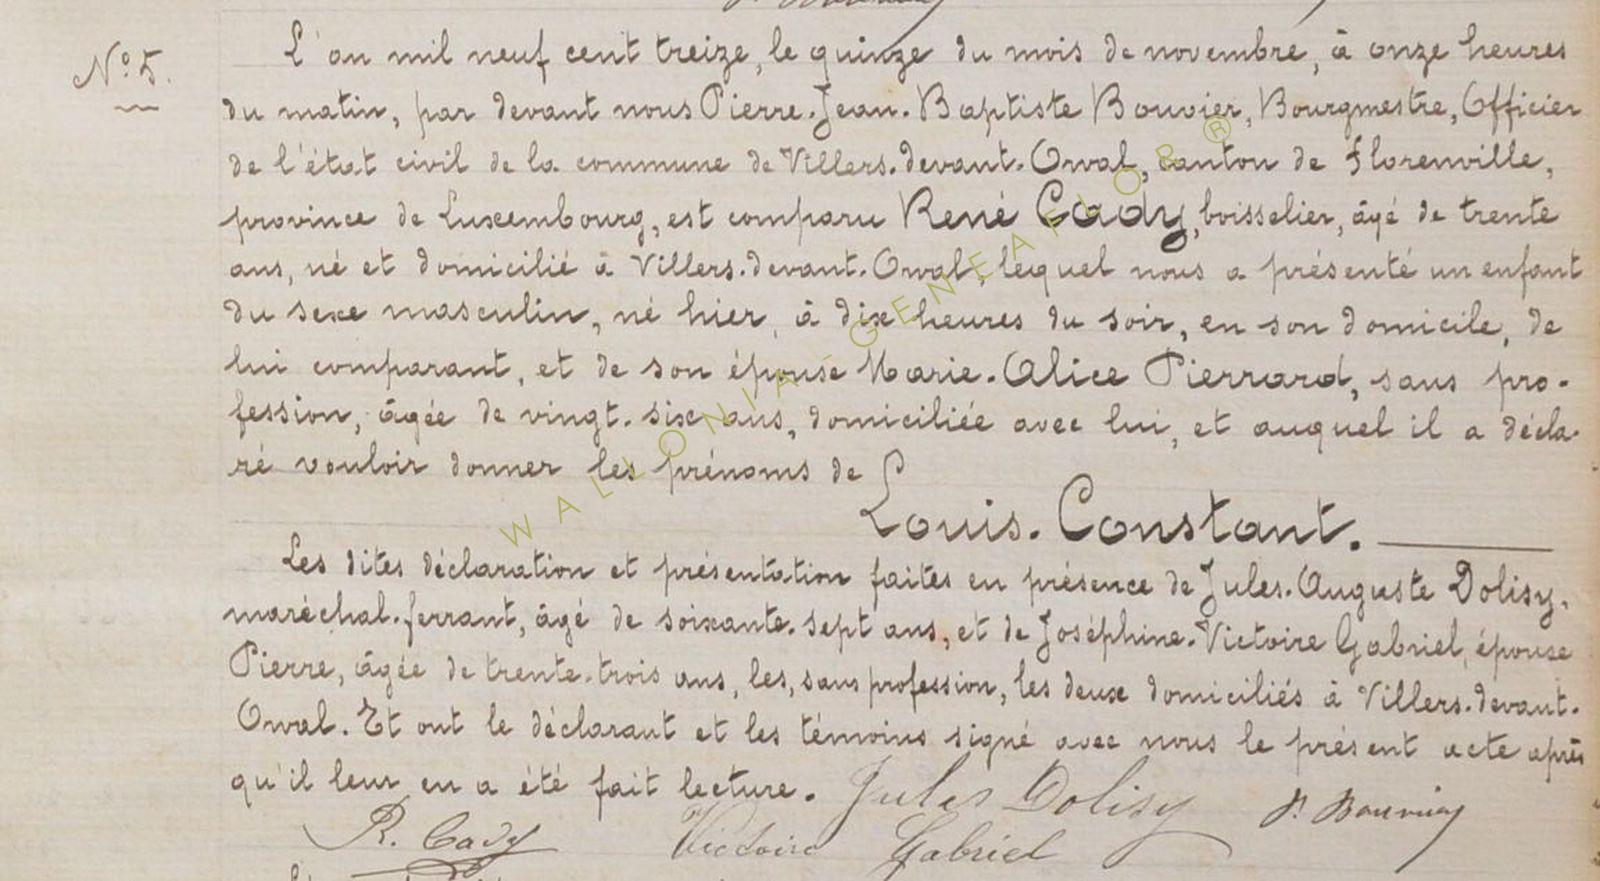 N° 5.
L'an mil neuf cent treize, le quinze du mois de novembre, à onze heures
du matin, par devant nous Pierre-Jean-Baptiste Bouvier, Bourgmestre, Officier
de l'état civil de la commune de Villers-devant-Orval, canton de Florenville,
province de Luxembourg, est comparu René Cady, boisselier, âgé de trente
ans, né et domicilié à Villers-devant-Orval, lequel nous a présenté un enfant
du sexe masculin, né hier, à dix heures du soir, en son domicile, de
lui comparant, et de son épouse Marie-Alice Pierrard, sans pro-
fession, âgée de vingt-six ans, domiciliée avec lui, et auquel il a décla-
ré vouloir donner les prénoms de
Louis-Constant.
Les dites déclaration et présentation faites en présence de Jules-Auguste Dolisy,
maréchal-ferrant, âgé de soixante-sept ans, et de Joséphine-Victoire Gabriel, épouse
Pierre, âgée de trente-trois ans, les, sans profession, les deux domiciliés à Villers-devant-
Orval. Et ont le déclarant et les témoins signé avec nous le présent acte après
qu'il leur en a été fait lecture. Jules Dolisy P. Bouvier
R. Cady Victoire Gabriel
WALLONIA-GENEAFLOR ®